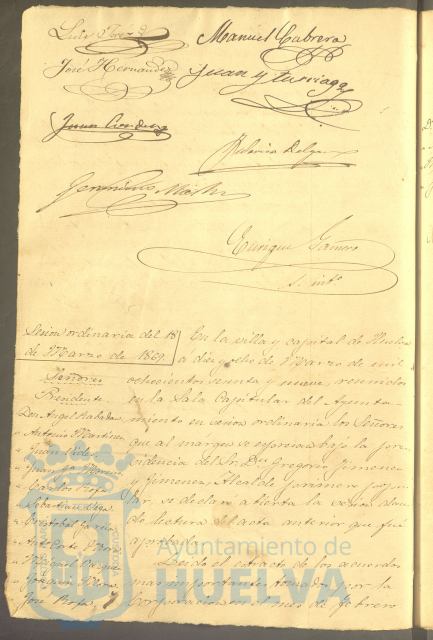 Luis
Manuel Cabrera
José Hernandez
Juan Yturriaga
Juan
Federico Delga
Geronimo
Enrique Gamero
S. int°
Sesion ordinaria del 18
de Marzo de 1869.
Señores
Presidente
Don Angel Rabada
" Antonio Martinez
" Juan
" Juan
Rofa
Sebastian
" Cristobal Garcia
" Ant°
" Miguel
" Joaquin Mora
Jose Rofa
En la villa y capital de Huelva
a diez y ocho de Marzo de mil
ochocientos sesenta y nueve, reunidos
en la Sala Capitular del Ayunta-
miento en sesion ordinaria los Señores
que al margen se espresan bajo la pre-
sidencia del Sr. Dn Gregorio Jimenez
y Jimenez, Alcalde primero popu-
lar, se declaró abierta la sesion dan-
do lectura del acta anterior que fué
aprobada.
Leido el estracto de los acuerdos
mas importantes tomados por la
Corporacion en el mes de febrero
Ayuntamiento de
HUELVA